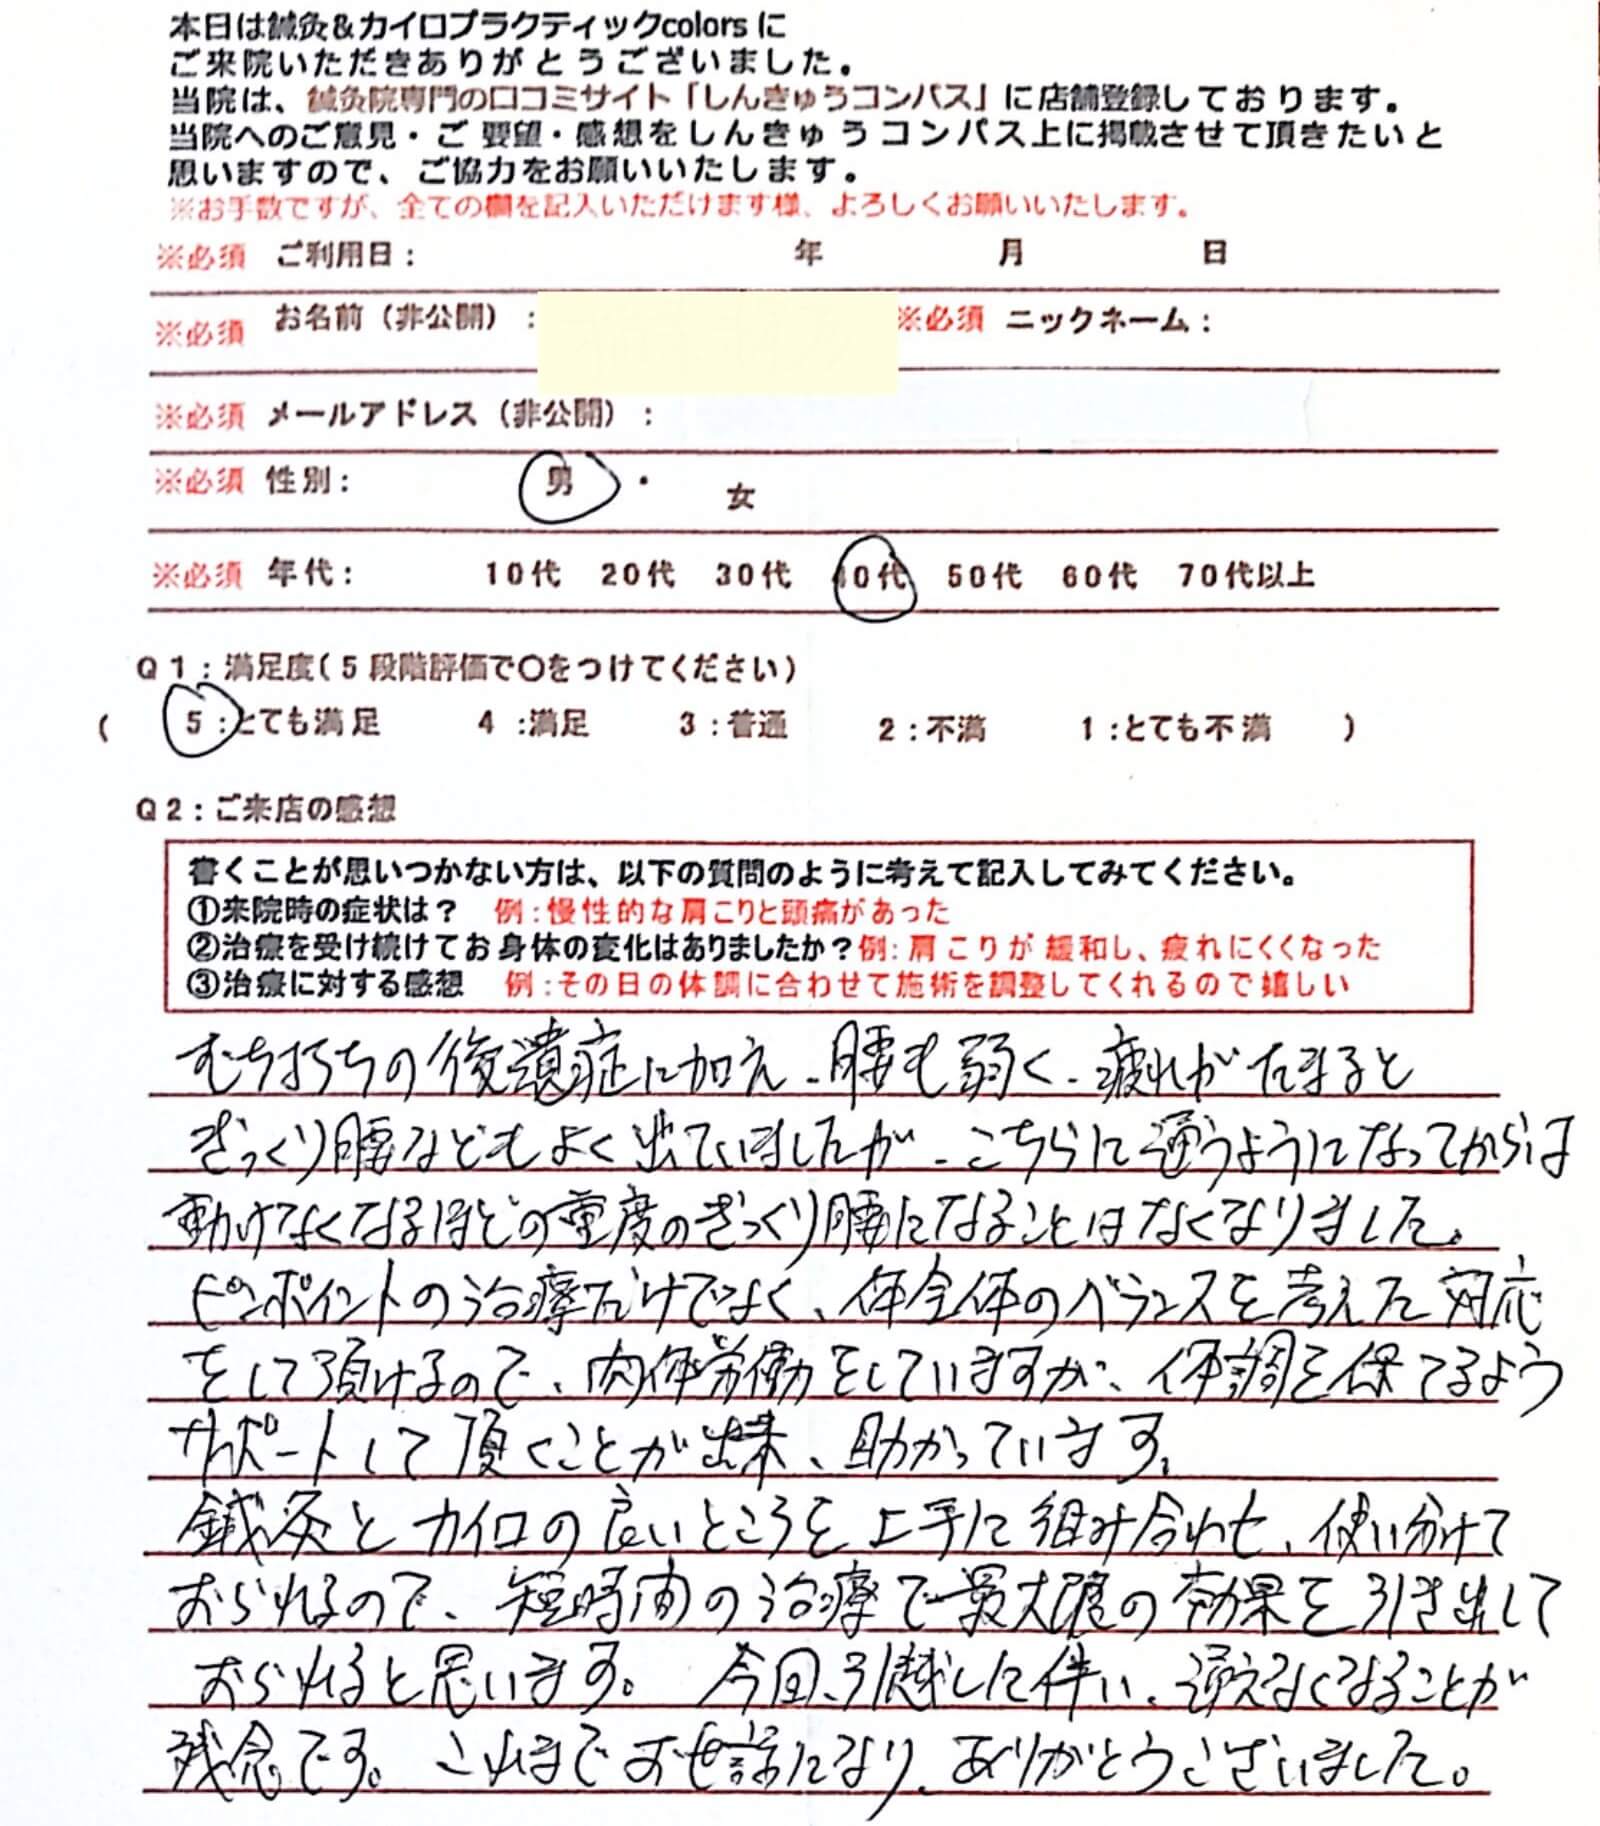 本日は鍼灸&カイロプラクティックcolorsに
ご来院いただきありがとうございました。
当院は、鍼灸院専門の口コミサイト「しんきゅうコンパス」に店舗登録しております。
当院へのご意見・ご要望・感想をしんきゅうコンパス上に掲載させて頂きたいと
思いますので、ご協力をお願いいたします。
※お手数ですが、全ての欄を記入いただけます様、よろしくお願いいたします。
※必須 ご利用日: 年 月 日
※必須 お名前(非公開): ※必須 ニックネーム:
※必須 メールアドレス(非公開):
※必須 性別: 男 ・ 女
※必須 年代: 10代 20代 30代 40代 50代 60代 70代以上
Q1:満足度(5段階評価で〇をつけてください)
( 5:とても満足 4:満足 3:普通 2:不満 1:とても不満 )
Q2:ご来店の感想
書くことが思いつかない方は、以下の質問のように考えて記入してみてください。
①来院時の症状は? 例:慢性的な肩こりと頭痛があった
②治療を受け続けてお身体の変化はありましたか?例:肩こりが緩和し、疲れにくくなった
③治療に対する感想 例:その日の体調に合わせて施術を調整してくれるので嬉しい
むち打ちの後遺症に加え、腰も弱く、疲れがたまると
ぎっくり腰などもよく出ていましたが、こちらに通うようになってからは
動けなくなるほどの重度のぎっくり腰になることはなくなりました。
ピンポイントの治療だけでなく、体全体のバランスを考えた対応
をして頂けるので、肉体労働をしていますが、体調を保てるよう
サポートして頂くことが出来、助かっています。
鍼灸とカイロの良いところを上手に組み合わせ、使い分けて
おられるので、短時間の治療で最大限の効果を引き出して
おられると思います。 今回、引越しに伴い、通えなくなることが
残念です。これまでお世話になり、ありがとうございました。